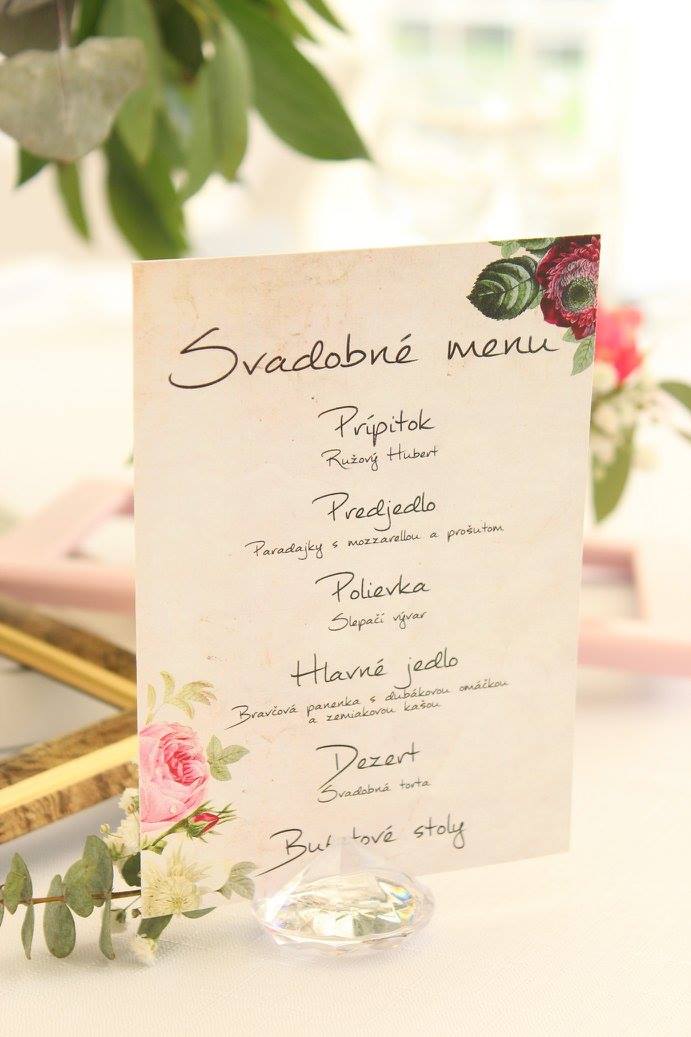 Svadobné menu
Prípitok
Ružový Hubert
Predjedlo
Paradajky s mozzarellou a prošutom
Polievka
Slepačí vývar
Hlavné jedlo
Bravčová panenka s dubákovou omáčkou
a zemiakovou kašou
Dezert
Svadobná torta
stoly